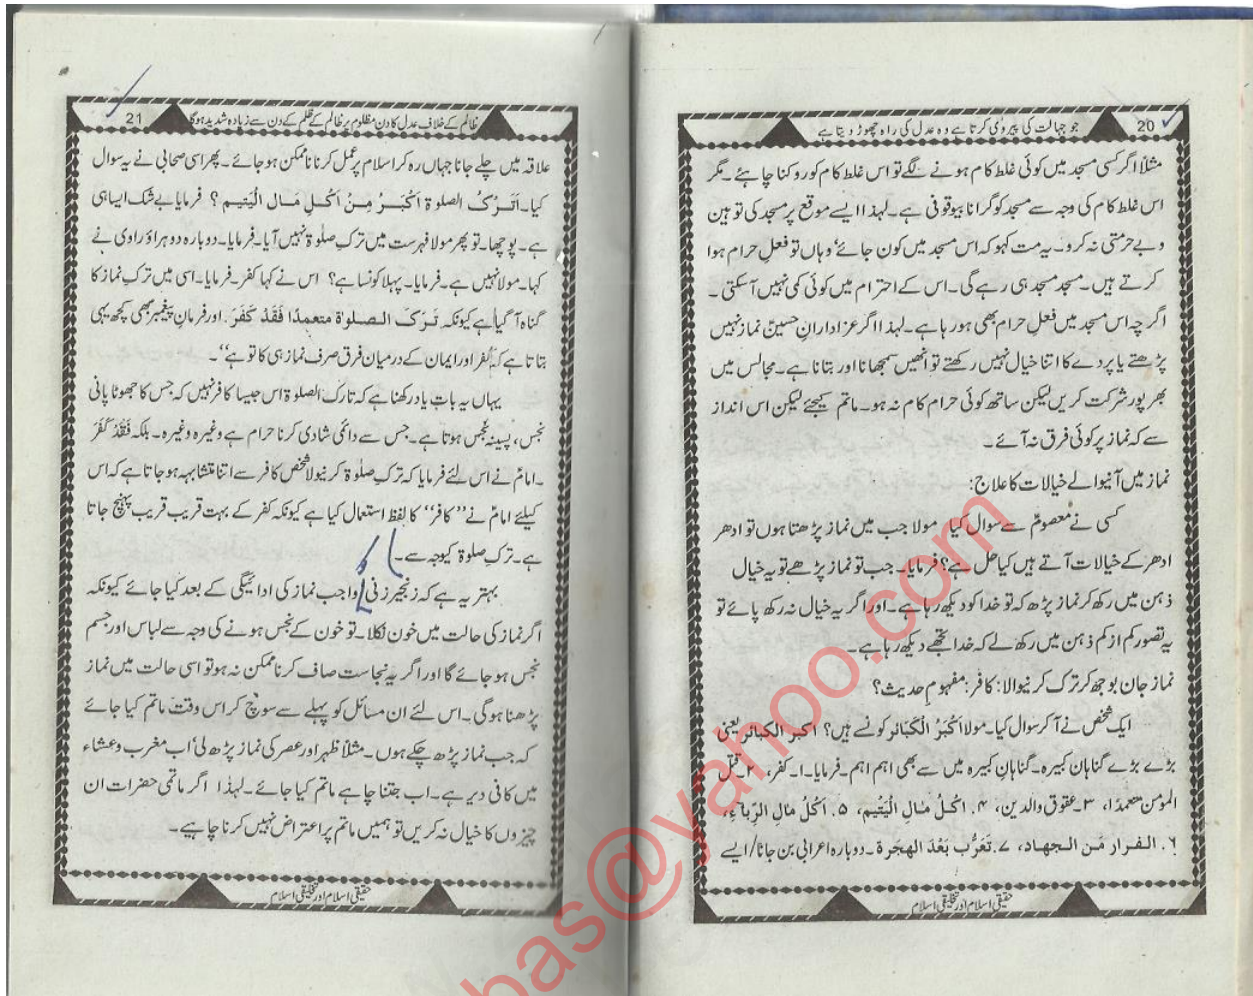 20
جو جہالت کی پیروی کرتا ہے وہ عدل کی راہ چھوڑ دیتا ہے
مثلاً اگر کسی مسجد میں کوئی غلط کام ہونے لگے تو اس غلط کام کو روکنا چاہئے۔ مگر
اس غلط کام کی وجہ سے مسجد کو گرانا بیوقوفی ہے۔ لہذا ایسے موقع پر مسجد کی توہین
و بے حرمتی نہ کرو۔ یہ مت کہو کہ اس مسجد میں کون جائے وہاں تو فعل حرام ہوا
کرتے ہیں۔ مسجد مسجد ہی رہے گی۔ اس کے احترام میں کوئی کمی نہیں آ سکتی۔
اگرچہ اس مسجد میں فعلِ حرام بھی ہو رہا ہے۔ لہذا اگر عزادارانِ حسینؑ نماز نہیں
پڑھتے یا پردے کا اتنا خیال نہیں رکھتے تو انھیں سمجھانا اور بتانا ہے۔ مجالس میں
بھرپور شرکت کریں لیکن ساتھ کوئی حرام کام نہ ہو۔ ماتم کیجئے لیکن اس انداز
سے کہ نماز پر کوئی فرق نہ آئے۔
نماز میں آنیوالے خیالات کا علاج:
کسی نے معصومؑ سے سوال کیا۔ مولا جب میں نماز پڑھتا ہوں تو ادھر
ادھر کے خیالات آتے ہیں کیا حل ہے؟ فرمایا۔ جب تو نماز پڑھے تو یہ خیال
ذہن میں رکھ کر نماز پڑھ کہ تو خدا کو دیکھ رہا ہے۔ اور اگر یہ خیال نہ رکھ پائے تو
یہ تصور کم از کم ذہن میں رکھ لے کہ خدا تجھے دیکھ رہا ہے۔
نماز جان بوجھ کر ترک کرنیوالا: کافر: مفہومِ حدیث؟
ایک شخص نے آ کر سوال کیا۔ مولا اَکْبَرُ الْکَبَائر کونسے ہیں؟ اکبر الکبائر یعنی
بڑے بڑے گناہان کبیرہ۔ گناہانِ کبیرہ میں سے بھی اہم اہم۔ فرمایا۔ ۱۔ کفر، ۲۔ قتل
المومن متعمدًا، ۳۔ عقوق والدین، ۴. اَکْلُ مَالِ الْیَتِیْم، ۵. اَکْلُ مَالِ الرِّبَاءِ،
۶. الفرار مّن الجهاد، ۷. تَعَرُّب بَعْدَ الهجَرة۔ دوبارہ اعرابی بن جانا/ ایسے
حقیقی اسلام اور تخلیقی اسلام
21
ظالم کے خلاف عدل کا دن مظلوم پر ظالم کے ظلم کے دن سے زیادہ شدید ہوگا
علاقہ میں چلے جانا جہاں رہ کر اسلام پر عمل کرنا ناممکن ہو جائے۔ پھر اسی صحابی نے یہ سوال
کیا۔ اَتَرْکُ الصلوة اَکْبَرُ مِنْ اَکْلِ مَالِ الْیَتیم؟ فرمایا بے شک ایسا ہی
ہے۔ پوچھا۔ تو پھر مولا فہرست میں ترکِ صلوٰۃ نہیں آیا۔ فرمایا۔ دوبارہ دوہراؤ راوی نے
کہا۔ مولا نہیں ہے۔ فرمایا۔ پہلا کونسا ہے؟ اس نے کہا کفر۔ فرمایا۔ اسی میں ترکِ نماز کا
گناہ آ گیا ہے کیونکہ تَرَکَ الصلوٰة متعمِدًا فَقَدْ کَفَرَ. اور فرمانِ پیغمبر بھی کچھ یہی
بتاتا ہے کہ "کفر اور ایمان کے درمیان فرق صرف نماز ہی کا تو ہے"۔
یہاں یہ بات یاد رکھنا ہے کہ تارک الصلوۃ اس جیسا کافر نہیں کہ جس کا جھوٹا پانی
نجس، پسینہ نجس ہوتا ہے۔ جس سے دائمی شادی کرنا حرام ہے وغیرہ وغیرہ۔ بلکہ فَقَدْ کَفَرَ
۔ امامؑ نے اس لئے فرمایا کہ ترکِ صلوٰۃ کرنیوالا شخص کافر سے اتنا متشابہہ ہو جاتا ہے کہ اس
کیلئے امامؑ نے "کافر" کا لفظ استعمال کیا ہے کیونکہ کفر کے بہت قریب قریب پہنچ جاتا
ہے۔ ترکِ صلوۃ کیوجہ سے۔
بہتر یہ ہے کہ زنجیر زنی واجب نماز کی ادائیگی کے بعد کیا جائے کیونکہ
اگر نماز کی حالت میں خون نکلا۔ تو خون کے نجس ہونے کی وجہ سے لباس اور جسم
نجس ہو جائے گا اور اگر یہ نجاست صاف کرنا ممکن نہ ہو تو اسی حالت میں نماز
پڑھنا ہوگی۔ اس لئے ان مسائل کو پہلے سے سوچ کر اس وقت ماتم کیا جائے
کہ جب نماز پڑھ چکے ہوں۔ مثلاً ظہر اور عصر کی نماز پڑھ لی اب مغرب و عشاء
میں کافی دیر ہے۔ اب جتنا چاہے ماتم کیا جائے۔ لہذا اگر ماتمی حضرات ان
چیزوں کا خیال نہ کریں تو ہمیں ماتم پر اعتراض نہیں کرنا چاہیے۔
حقیقی اسلام اور تخلیقی اسلام
bas@yahoo.com